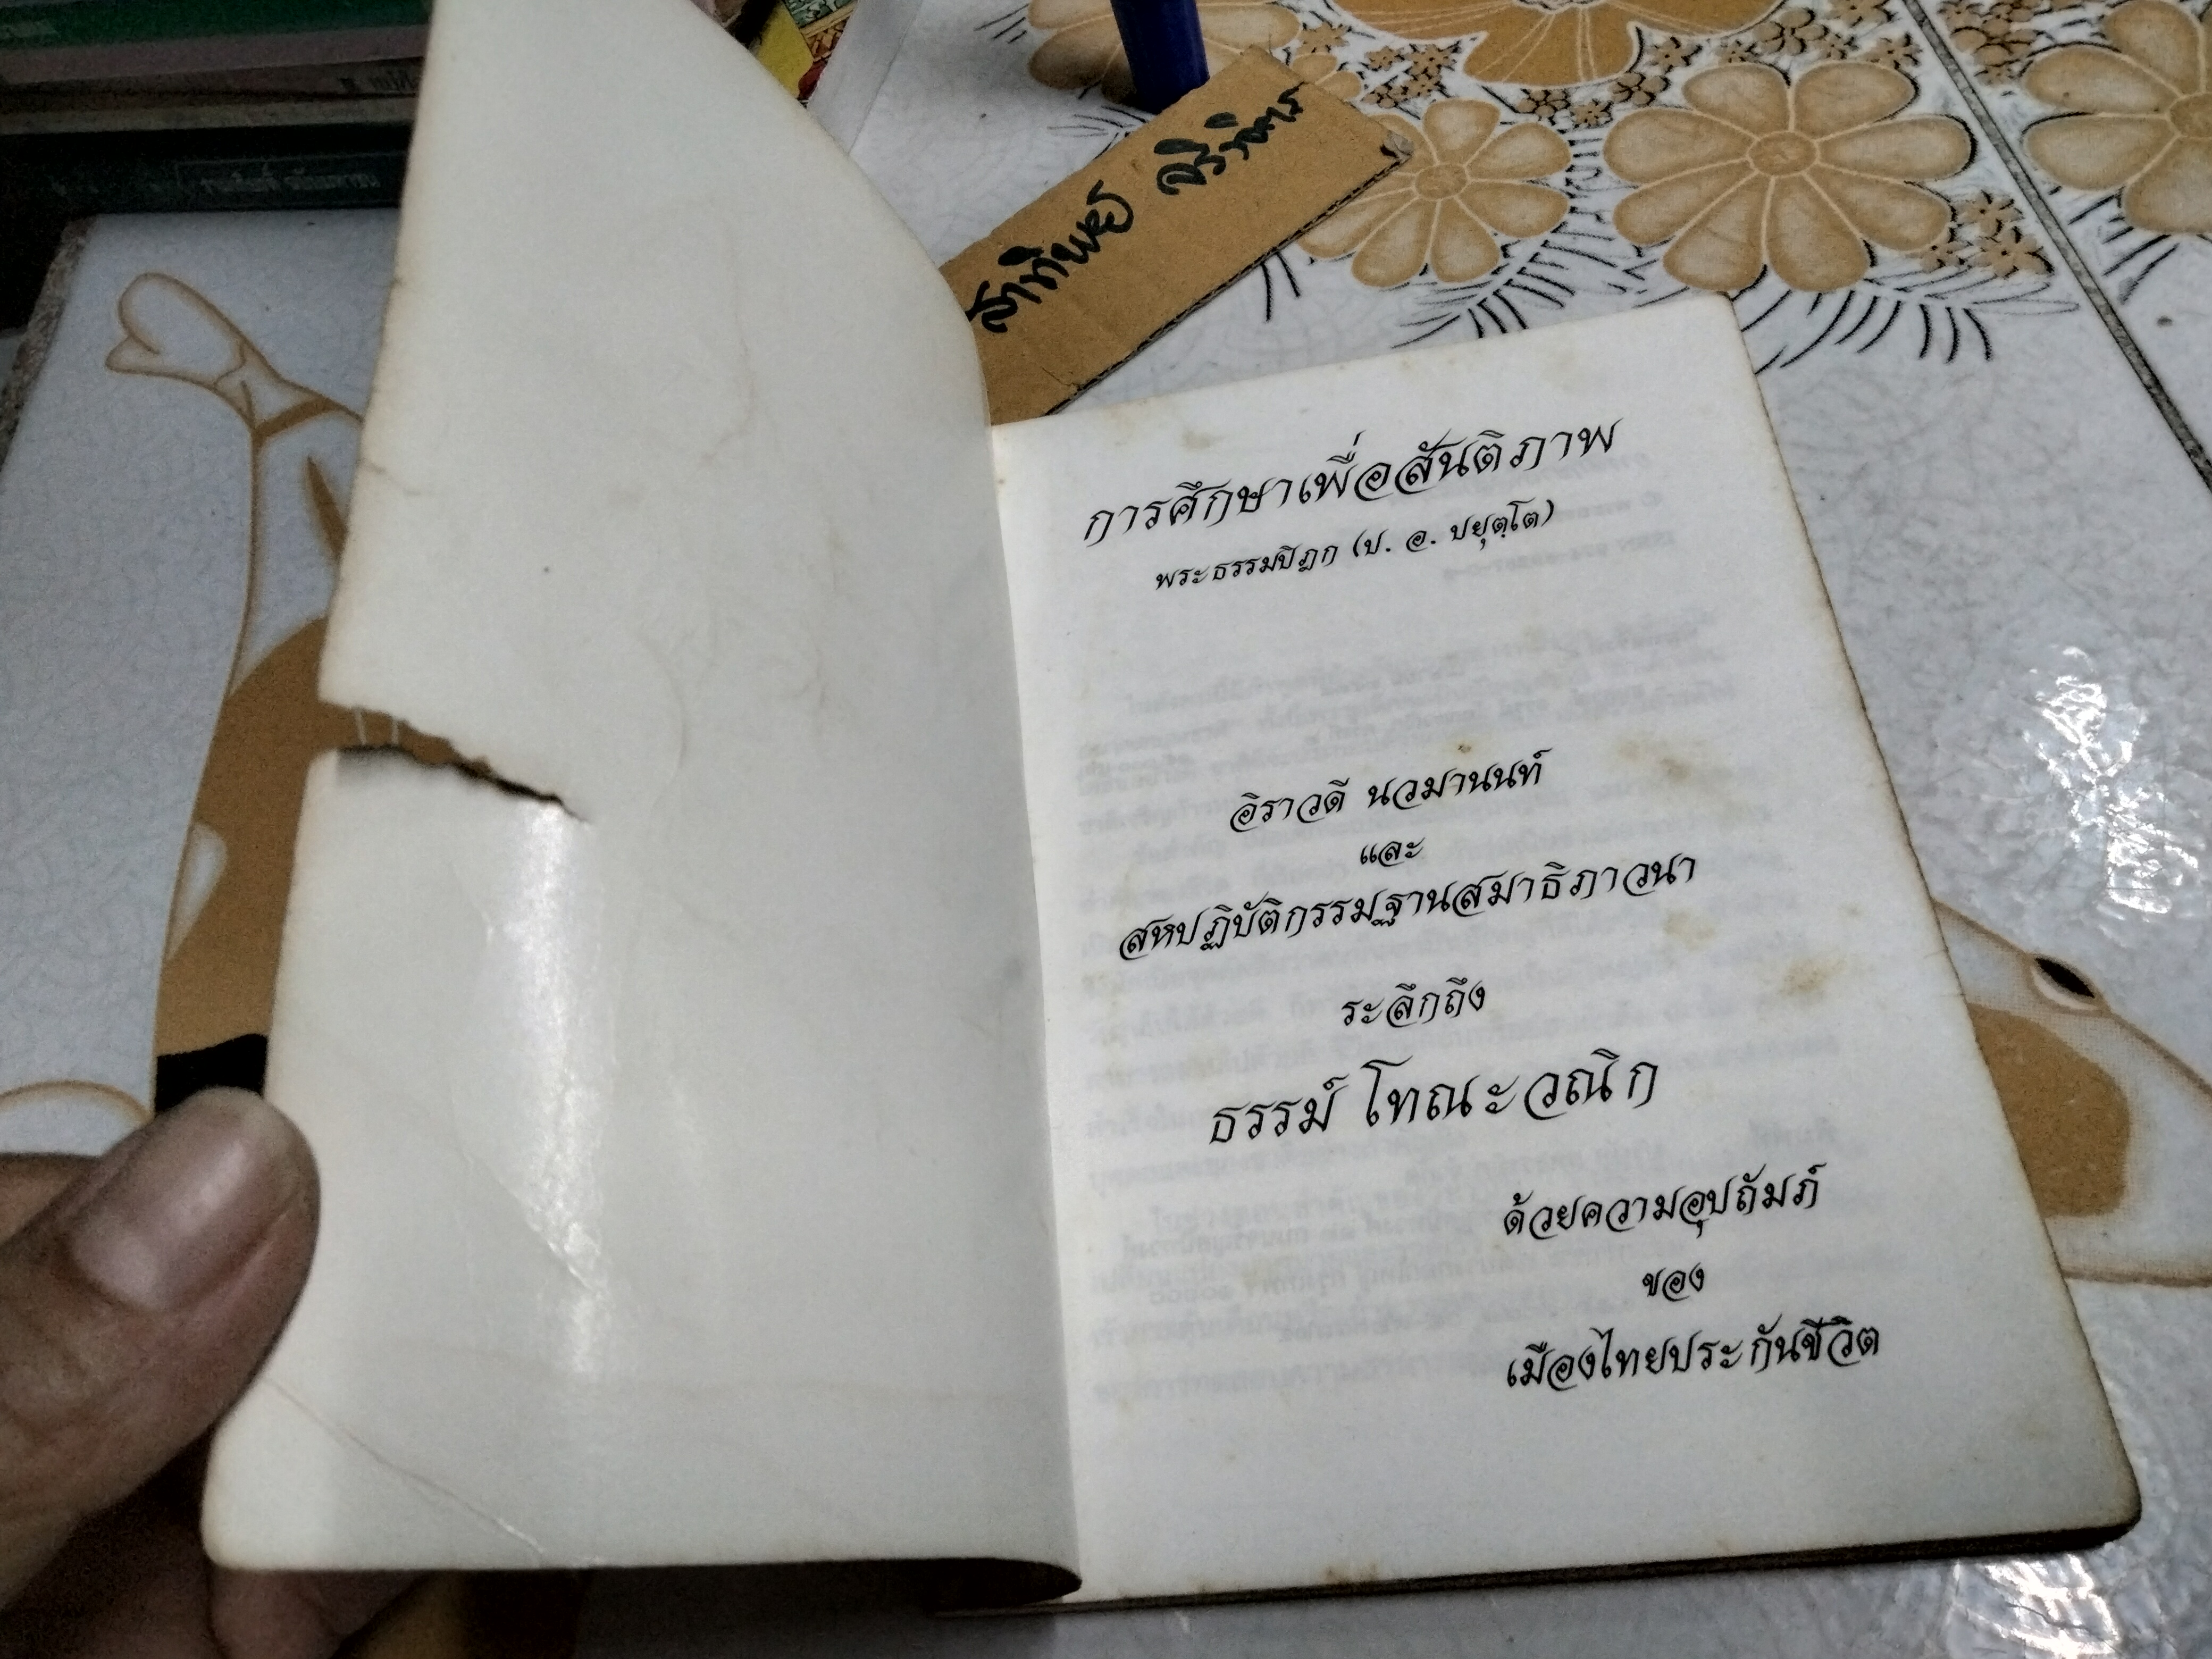 สาทิพย์
การศึกษาเพื่อสันติภาพ
พระธรรมปิฎก (ป. อ. ปยุตฺโต)
อิราวดี นวมานนท์
และ
สหปฏิบัติกรรมฐานสมาธิภาวนา
ระลึกถึง
ธรรม์ โทณะวณิก
ด้วยความอุปถัมภ์
ของ
เมืองไทยประกันชีวิต